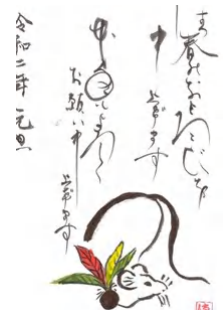 春のおよろこびを
申し上げます
よろしく
お願い申し
上げます
令和二年 元旦